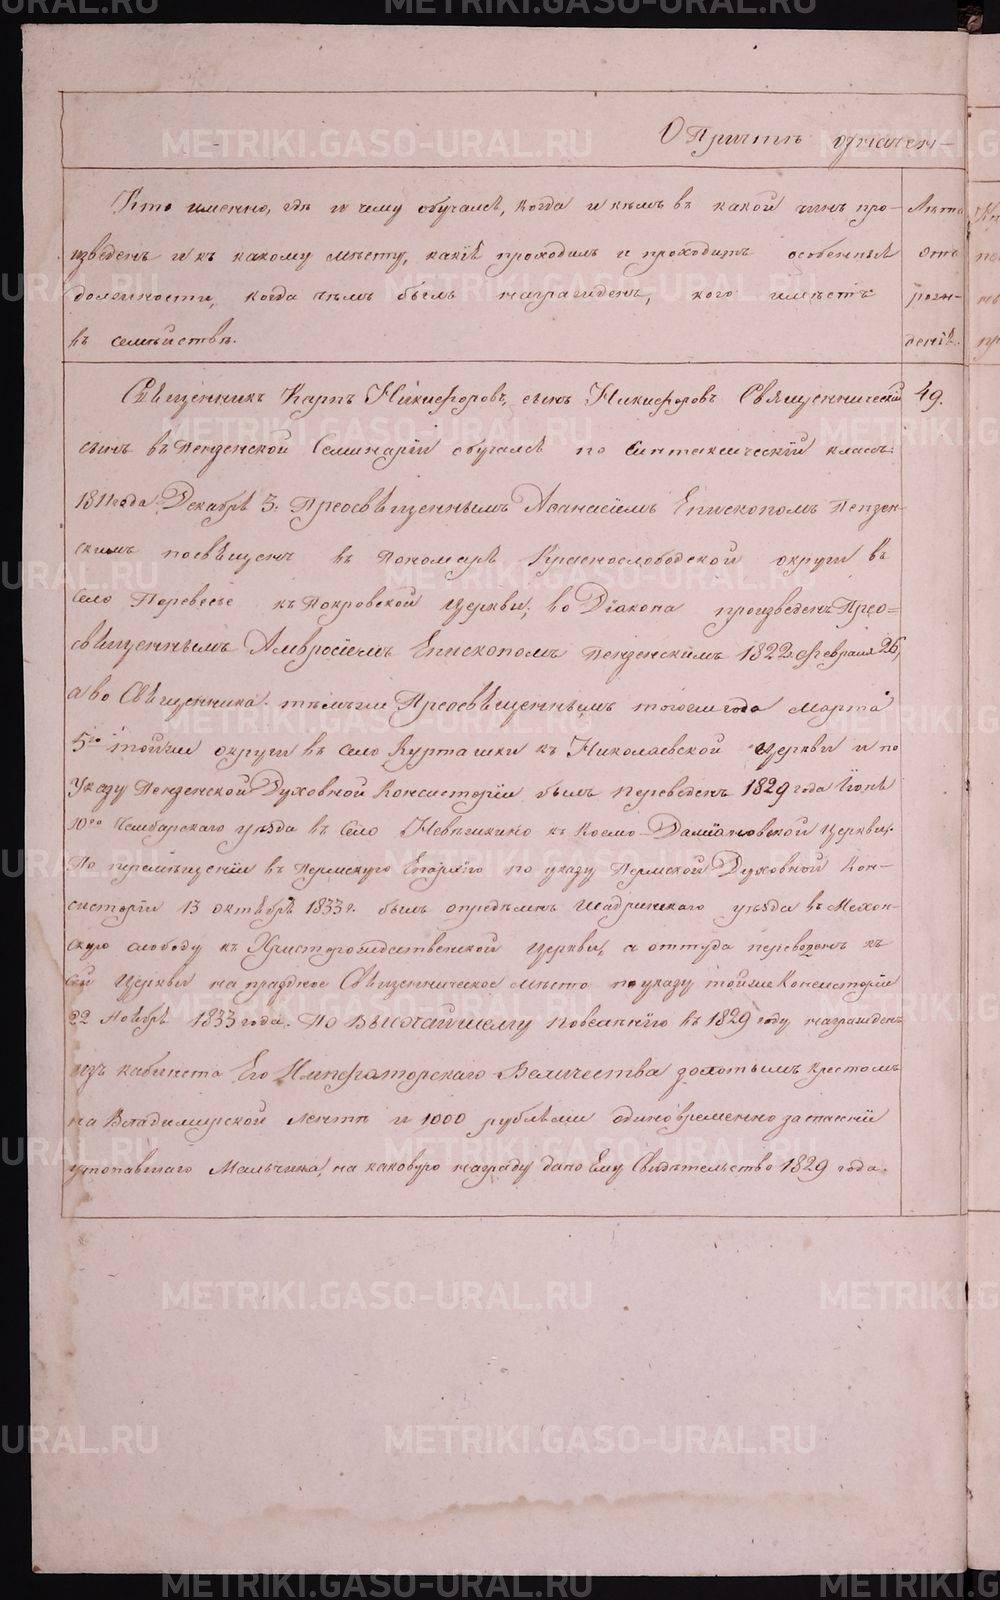 О Причтѣ означен-
Кто именно, гдѣ и чему обучался, когда и кѣмъ въ какой чинъ про-
изведенъ и къ какому мѣсту, какія проходилъ и проходитъ особенныя
должности, когда чѣмъ былъ награжденъ, кого имѣетъ
въ семѣйствѣ.
Лѣта
отъ
рож-
денія.
Священникъ Карпъ Никифоровъ, сынъ Никифоровъ Священническій 49.
сынъ въ Пензенской Семинаріи обучался по Синтаксическій классъ.
1811 года Декабря 3. Преосвященнымъ Афанасіемъ Епископомъ Пензен-
скимъ посвященъ въ Пономаря Краснослободской округи въ
Село Перевесье къ Покровской Церкви; во Діакона произведенъ Прео-
священнымъ Амвросіемъ Епископомъ Пензенскимъ 1822 Февраля 26,
а во Священника тѣмъ же Преосвященнымъ тогоже года Марта
5го тойже округи въ село Курташки къ Николаевской Церкви и по
Указу Пензенской Духовной Консисторіи былъ переведенъ 1829 года Іюня
10го Чембарскаго уѣзда въ Село Невѣжкино къ Космо-Даміановской Церкви.
По перемѣщеніи въ Пермскую Епархію по указу Пермской Духовной Кон-
систоріи 13 октября 1833 г. былъ опредѣленъ Шадринскаго уѣзда въ Мехон-
скую слободу къ Христорождественской Церкви, а оттуда переведенъ къ
сей Церкви на праздное Священническое мѣсто по указу тойже Консисторіи
22 Ноября 1833 года. По Высочайшему повелѣнію въ 1829 году награжденъ
изъ кабинета Его Императорскаго Величества золотымъ крестомъ
на Владимирской лентѣ и 1000 рублями одиновременно за спасеніи
утопавшаго Мальчика, на каковую награду дано Ему Свидѣтельство 1829 года.
METRIKI.GASO-URAL.RU